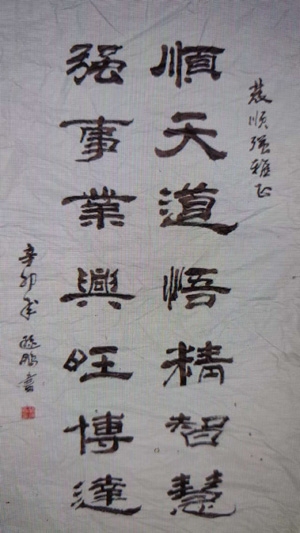 裴顺强雅正
順天道悟精智慧
强事業興旺博達
辛卯年 書